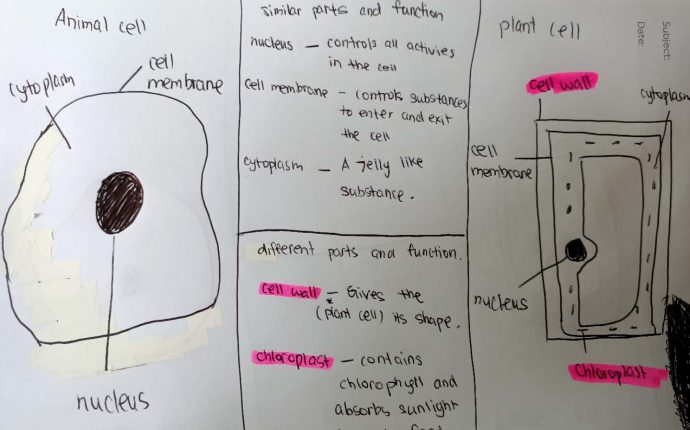 Animal cell
cell
membrane
cytoplasm
nucleus
similar parts and function
nucleus – controls all activies
in the cell
cell membrane – controls substances
to enter and exit
the cell
cytoplasm – A jelly like
substance.
different parts and function.
cell wall – Gives the
(plant cell) its shape.
chloroplast – contains
chlorophyll and
absorbs sunlight
plant cell
Subject:
Date:
cell wall
cytoplasm
cell
membrane
nucleus
Chloroplast